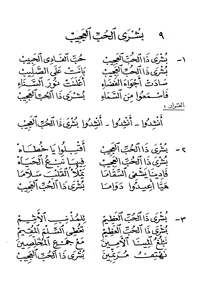 ٩ بُشْرَى الْحُبِّ الْعَجِيبِ
١- بُشْرَى ذَا الْحُبِّ الْعَجِيبْ حُبِّ الْفَادِي الْحَبِيبْ
بُشْرَى ذَا الْحُبِّ الْعَجِيبْ بَانَتْ عَلَى الصَّلِيبْ
سَادَتْ أَجْوَاءَ الْفَضَاءْ أَعْلَنَتْ نُورَ السَّمَاءْ
فَاسْمَعُوا مِنَ السَّمَاءْ بُشْرَى الْحُبِّ الْعَجِيبْ
القرار:
أَنْشِدُوا - أَنْشِدُوا - أَنْشِدُوا بُشْرَى ذَا الْحُبِّ الْعَجِيبْ
٢- بُشْرَى ذَا الْحُبِّ الْعَجِيبْ أَقْبِلُوا يَا خُطَاةْ
بُشْرَى ذَا الْحُبِّ الْعَجِيبْ فِيهَا نَبْعُ الْحَيَاةْ
فَادِينَا يَشْفِي السَّقَامَا
هَيَّا أَعِيدُوا دَوَامَا بُشْرَى ذَا الْحُبِّ الْعَجِيبْ
٣- بُشْرَى ذَا الْحُبِّ الْعَظِيمْ لِلْمُذْنِبِ الْأَثِيمْ
بُشْرَى ذَا الْحُبِّ الْعَظِيمْ
مَعْ جَمِيعِ الْمُخْلَصِينْ
بُشْرَى ذَا الْحُبِّ الْعَجِيبْ